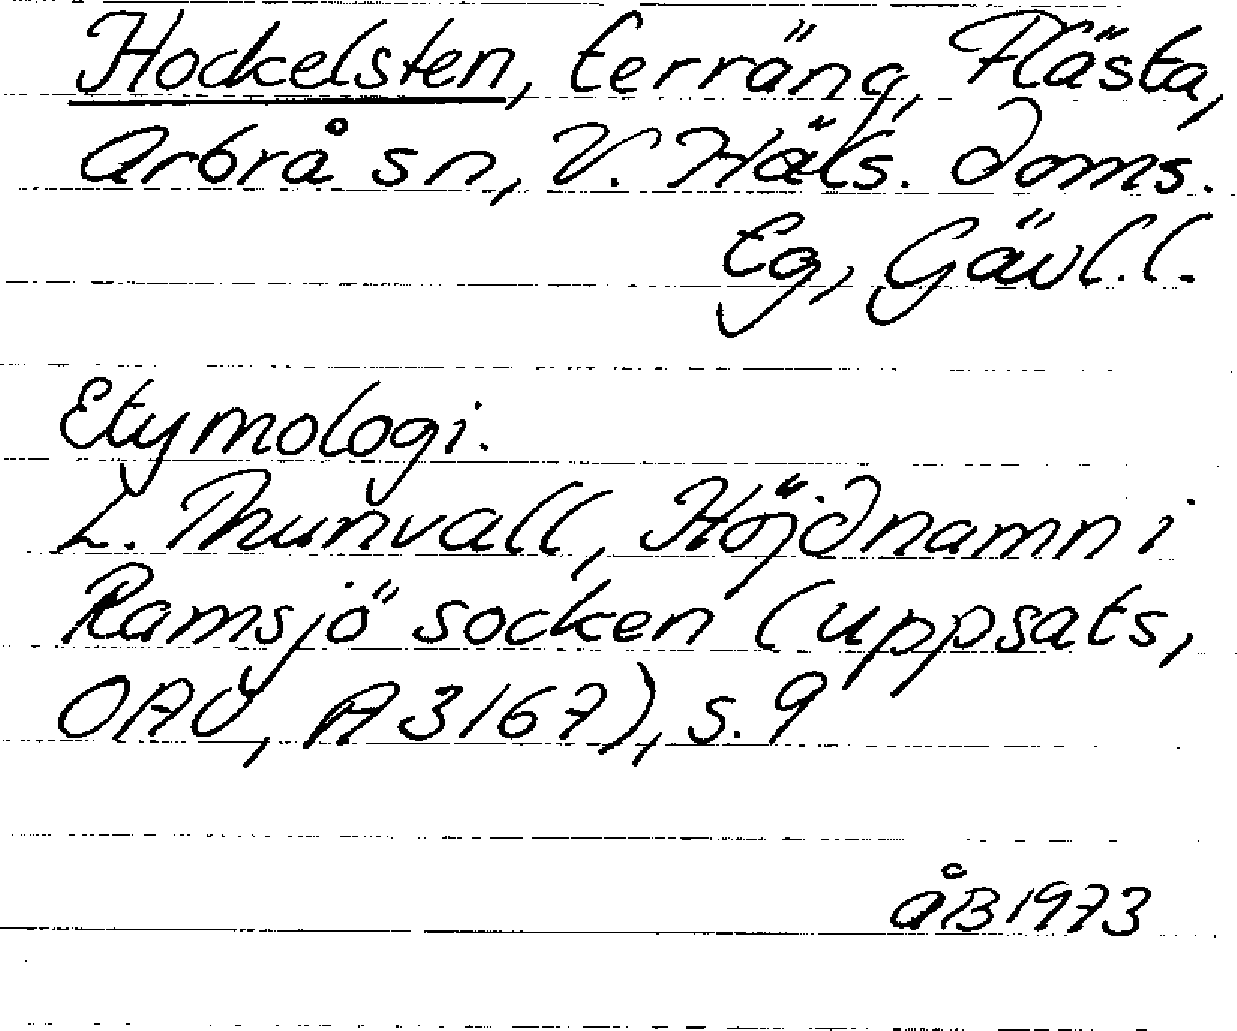 Hockelsten, terräng, Flästa,
Arbrå sn, V. Häls. doms.
Eg, Gävl.l.
Etymologi.
L. Thunvall, Höjdnamn i
Ramsjö socken (uppsats,
OAU, A3167), s. 9
ÅB 1973